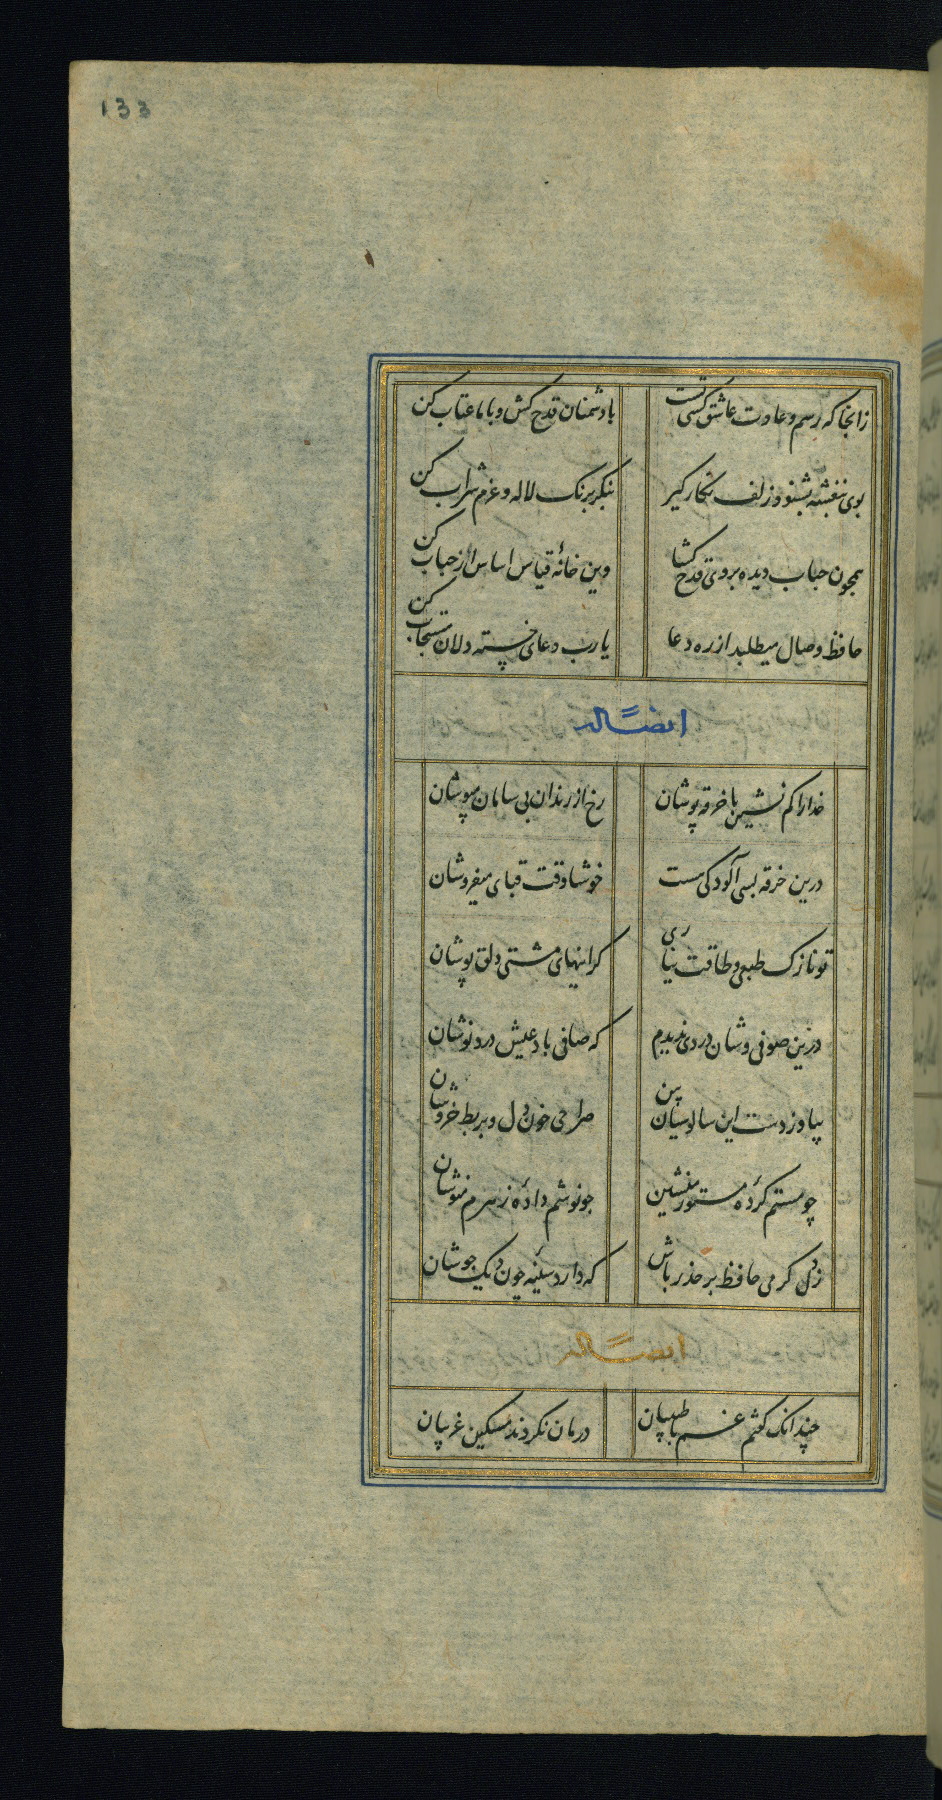 133
زانجا که رسم و عادت عاشق کشی تست با دشمنان قدح کش و با ما عتاب کن
بوی بنفشه بشنو و زلف نکار کیر بنکر برنک لاله و عزم شراب کن
همچون حباب دیده بروی قدح کشا وین خانهٔ قیاس اساس از حباب کن
حافظ وصال میطلبد از ره دعا یا رب دعای خسته دلان مستجاب کن
ایضاً له
خدا را کم نشین با خرقه پوشان رخ از رندان بی سامان مپوشان
درین خرقه بسی آلودکی هست خوشا وقت قبای میفروشان
تو نازک طبعی و طاقت نیاری کرانیهای مشتی دلق پوشان
درین صوفی وشان دردی ندیدم که صافی باد عیش دردنوشان
بیا وز دست این سالوسیان بین صراحی خون دل و بربط خروشان
چو مستم کرده مستور منشین چو نوشم داده زهرم منوشان
ز دل کرمی حافظ بر حذر باش که دارد سینه چون دیک جوشان
ایضاً له
چندانک کفتم غم با طبیبان درمان نکردند مسکین غریبان